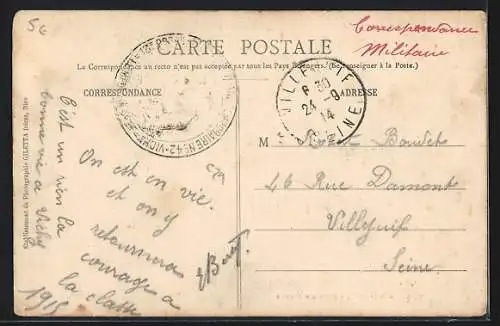 56
CARTE POSTALE
Correspondance
Militaire
La Correspondance au recto n'est pas acceptée par tous les Pays Étrangers. (Se renseigner à la Poste.)
CORRESPONDANCE
ADRESSE
VILLEJUIF
6 30
24 - 9
14
SEINE
N° 42 - VICHY
M
Boudet
46 Rue Damont
Villejuif
Seine
On est en vie.
et on y
retournera
courage a
la classe
C'est un rien la
bonne vie a Vichy
1915
Établissement de Photographie GILETTA frères, Nice